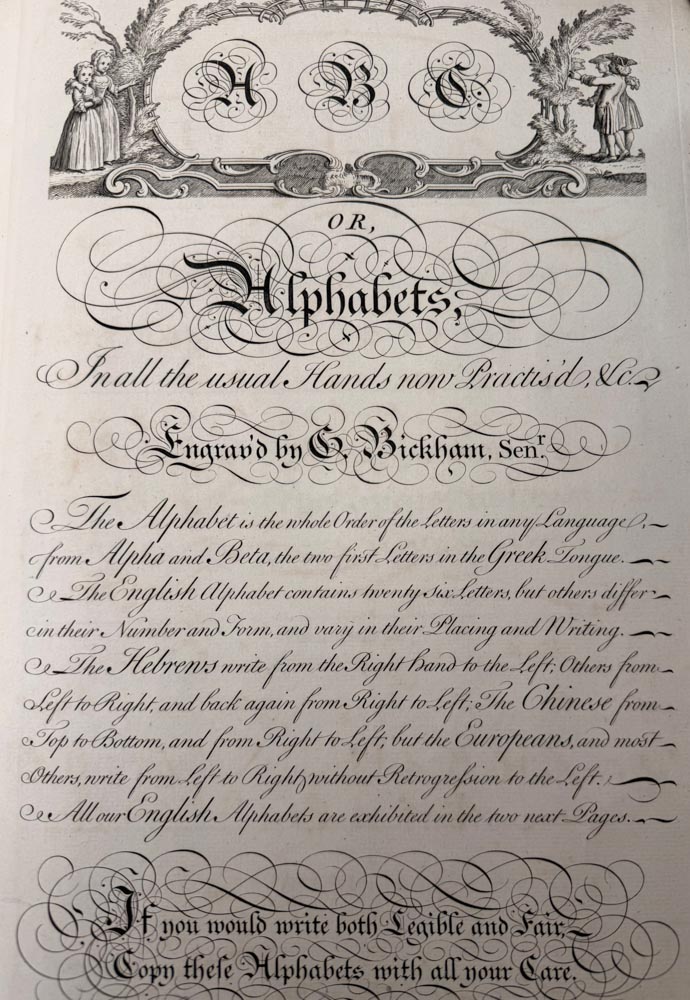 A B C
OR,
Alphabets,
In all the usual Hands now Practis'd, &c.
Engrav'd by G. Bickham, Senr.
The Alphabet is the whole Order of the Letters in any Language,
from Alpha and Beta, the two first Letters in the Greek Tongue.
The English Alphabet contains twenty Six Letters, but others differ
in their Number and Form, and vary in their Placing and Writing.
The Hebrews write from the Right hand to the Left; Others from
Left to Right, and back again from Right to Left; The Chinese from
Top to Bottom, and from Right to Left; but the Europeans, and most
Others, write from Left to Right, without Retrogreſsion to the Left.
All our English Alphabets are exhibited in the two next Pages.
If you would write both Legible and Fair,
Copy theſe Alphabets with all your Care.